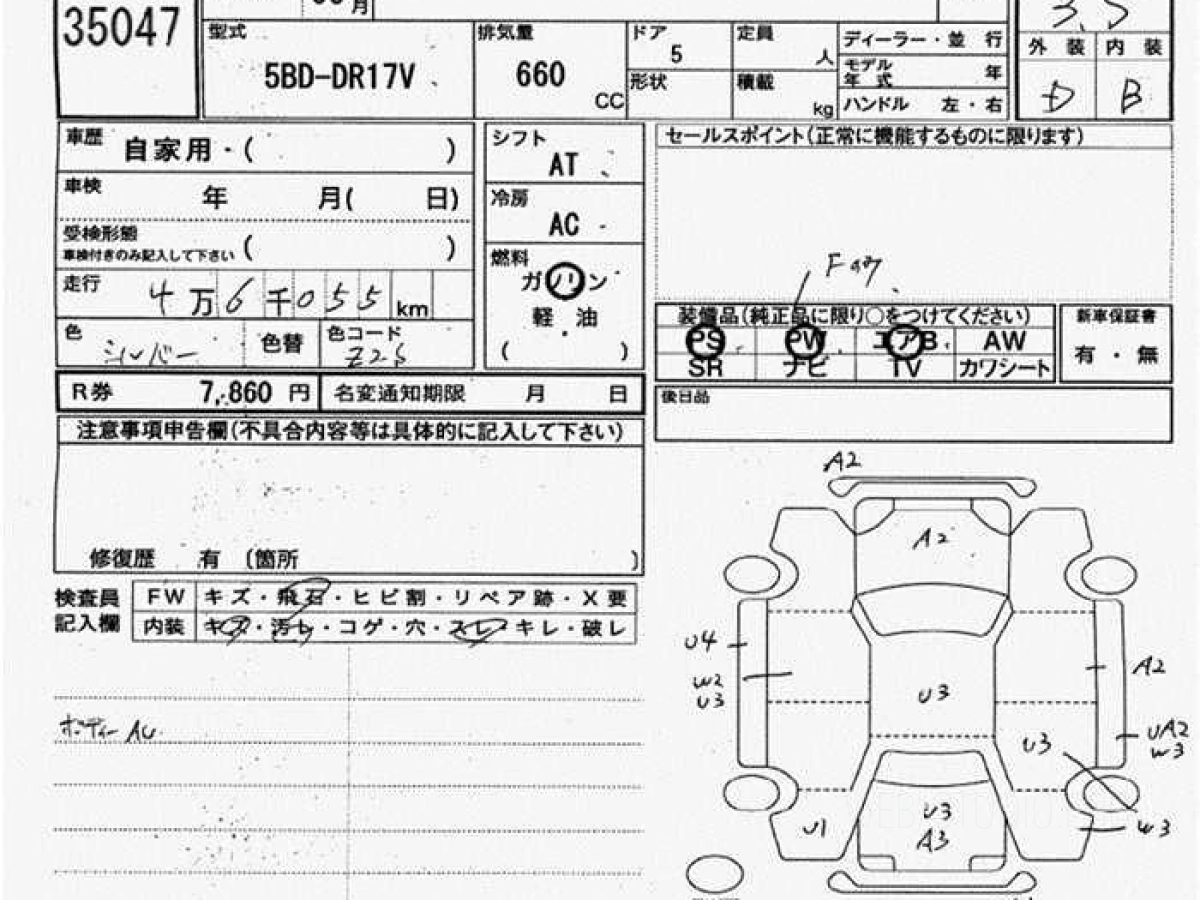 35047
月
3.5
型式
5BD-DR17V
排気量
660
CC
ドア
5
形状
定員
人
積載
kg
ディーラー・並 行
モデル
年 式
年
ハンドル 左・右
外 装
内 装
D
B
車歴
自家用・( )
車検
年 月( 日)
受検形態
車検付きのみ記入して下さい ( )
走行
4万6千055 km
色
シルバー
色替
色コード
Z2S
シフト
AT
冷房
AC
燃料
ガソリン
軽 油
( )
セールスポイント(正常に機能するものに限ります)
装備品(純正品に限り○をつけてください)
PS PW エアB AW
SR ナビ TV カワシート
新車保証書
有 ・ 無
R券 7,860 円
名変通知期限 月 日
後日品
注意事項申告欄(不具合内容等は具体的に記入して下さい)
修復歴 有 〔箇所 〕
検査員
記入欄
FW キズ・飛石・ヒビ割・リペア跡・X要
内装 キズ・汚レ・コゲ・穴・スレ・キレ・破レ
A2
A2
U4
W2
U3
U3
A2
U3
UA2
W3
U1
U3
A3
W3